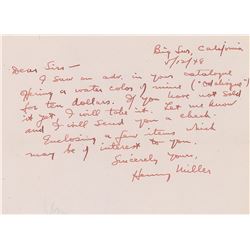 Big Sur, California
5/12/48
Dear Sirs —
I saw an adv. in your catalogue
offering a water color of mine ("
for ten dollars. If you have not sold
it yet I will take it. Let me know
and I will send you a check.
Enclosing a few items which
may be of interest to you.
Sincerely yours,
Henry Miller